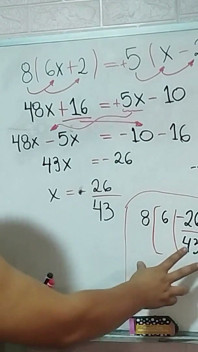 8(6x+2) = +5(x-2
48x+16 = +5x-10
48x-5x = -10-16
43x = -26
x = -26/43
8[6(-26/43